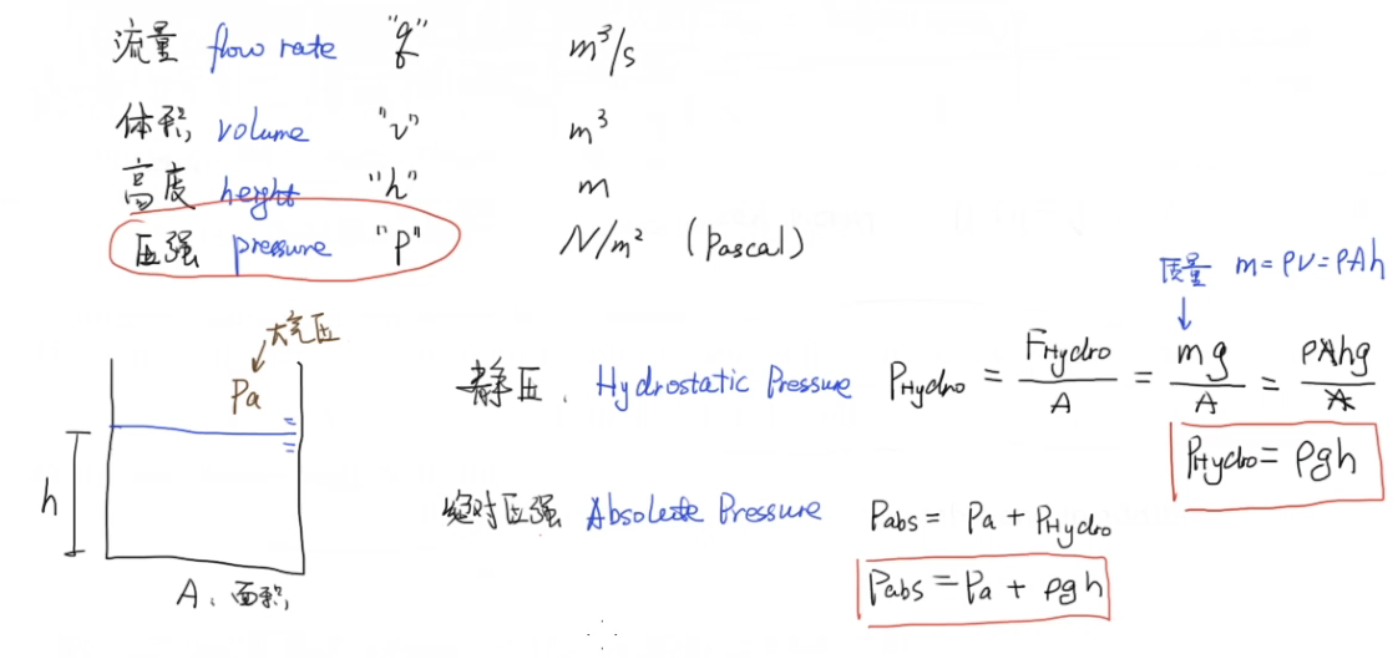 流量 flow rate "q" m³/s
体积 volume "v" m³
高度 height "h" m
压强 pressure "P" N/m² (Pascal)
质量 m = ρV = ρAh
大气压
Pa
h
A、面积
静压、Hydrostatic Pressure P_Hydro = F_Hydro/A = mg/A = ρAhg/A
P_Hydro = ρgh
绝对压强 Absolute Pressure Pabs = Pa + P_Hydro
Pabs = Pa + ρgh